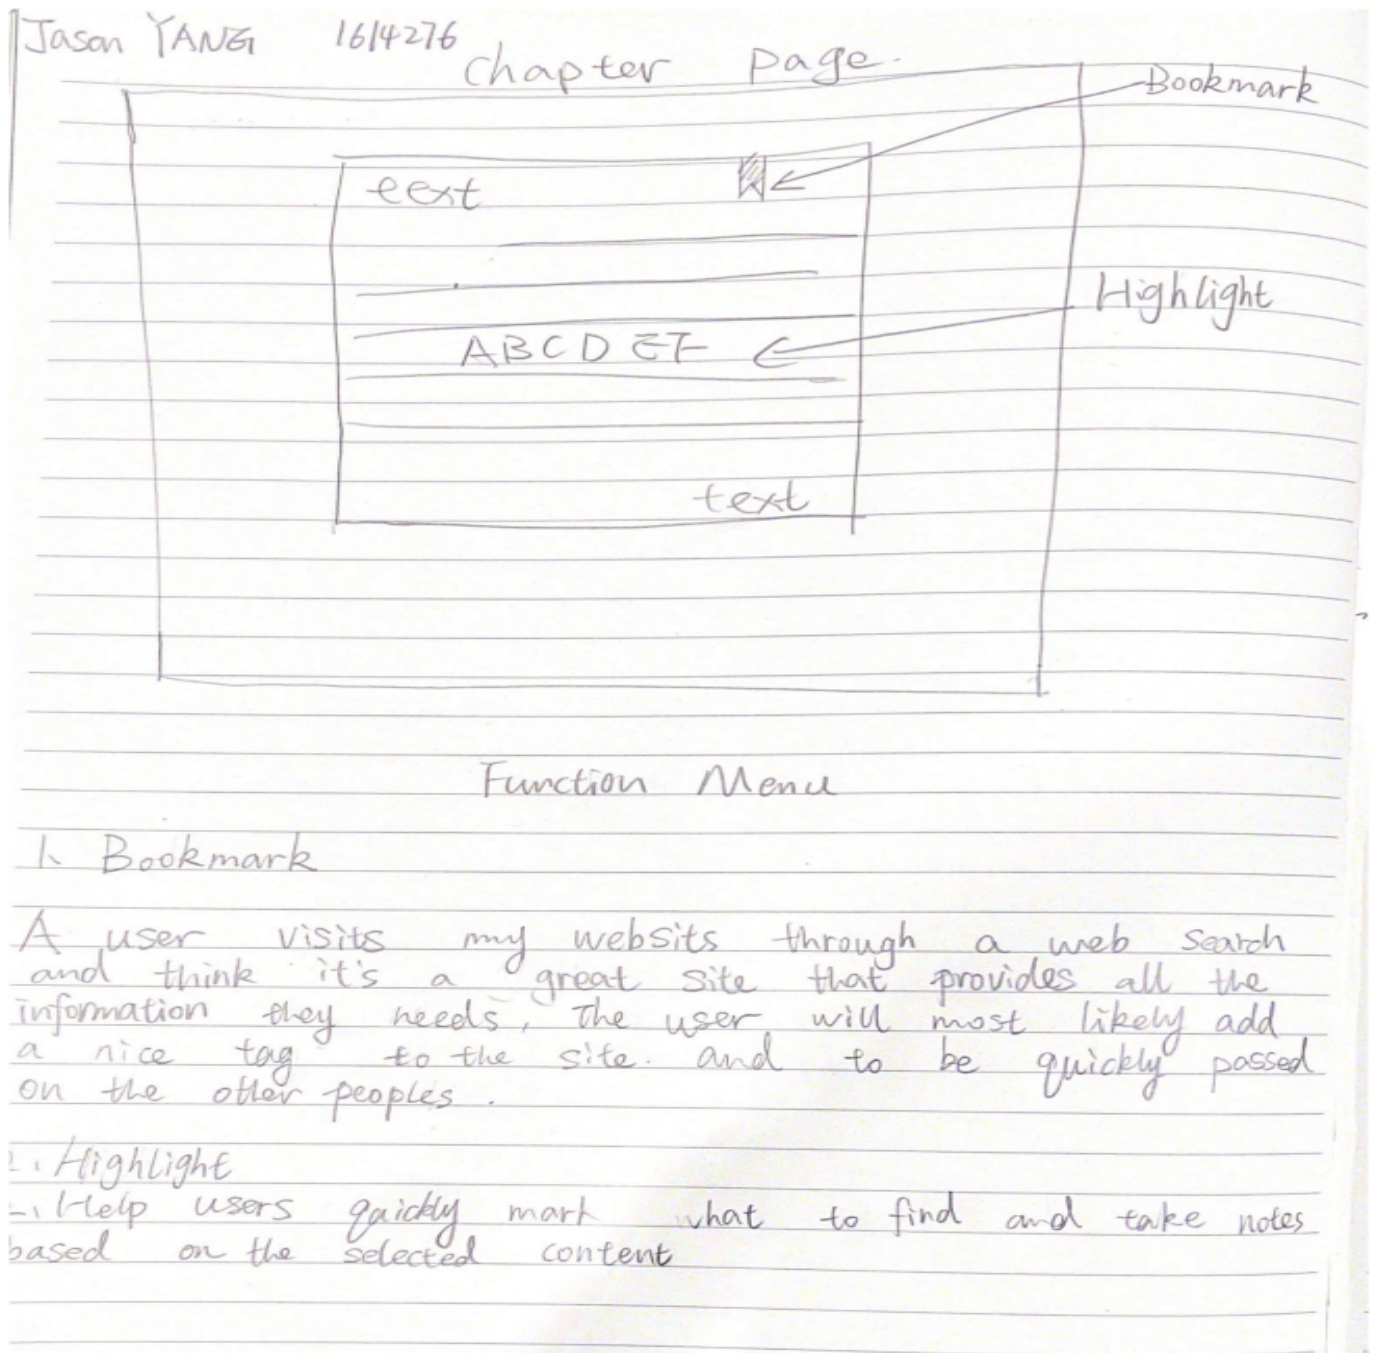 Jason YANG 1614276
Chapter page.
Bookmark
text
Highlight
ABCDEF
text
Function Menu
1. Bookmark
A user visits my websits through a web search
and think it's a great site that provides all the
information they needs, The user will most likely add
a nice tag to the site. and to be quickly passed
on the other peoples.
2. Highlight
Help users quickly mark what to find and take notes
based on the selected content